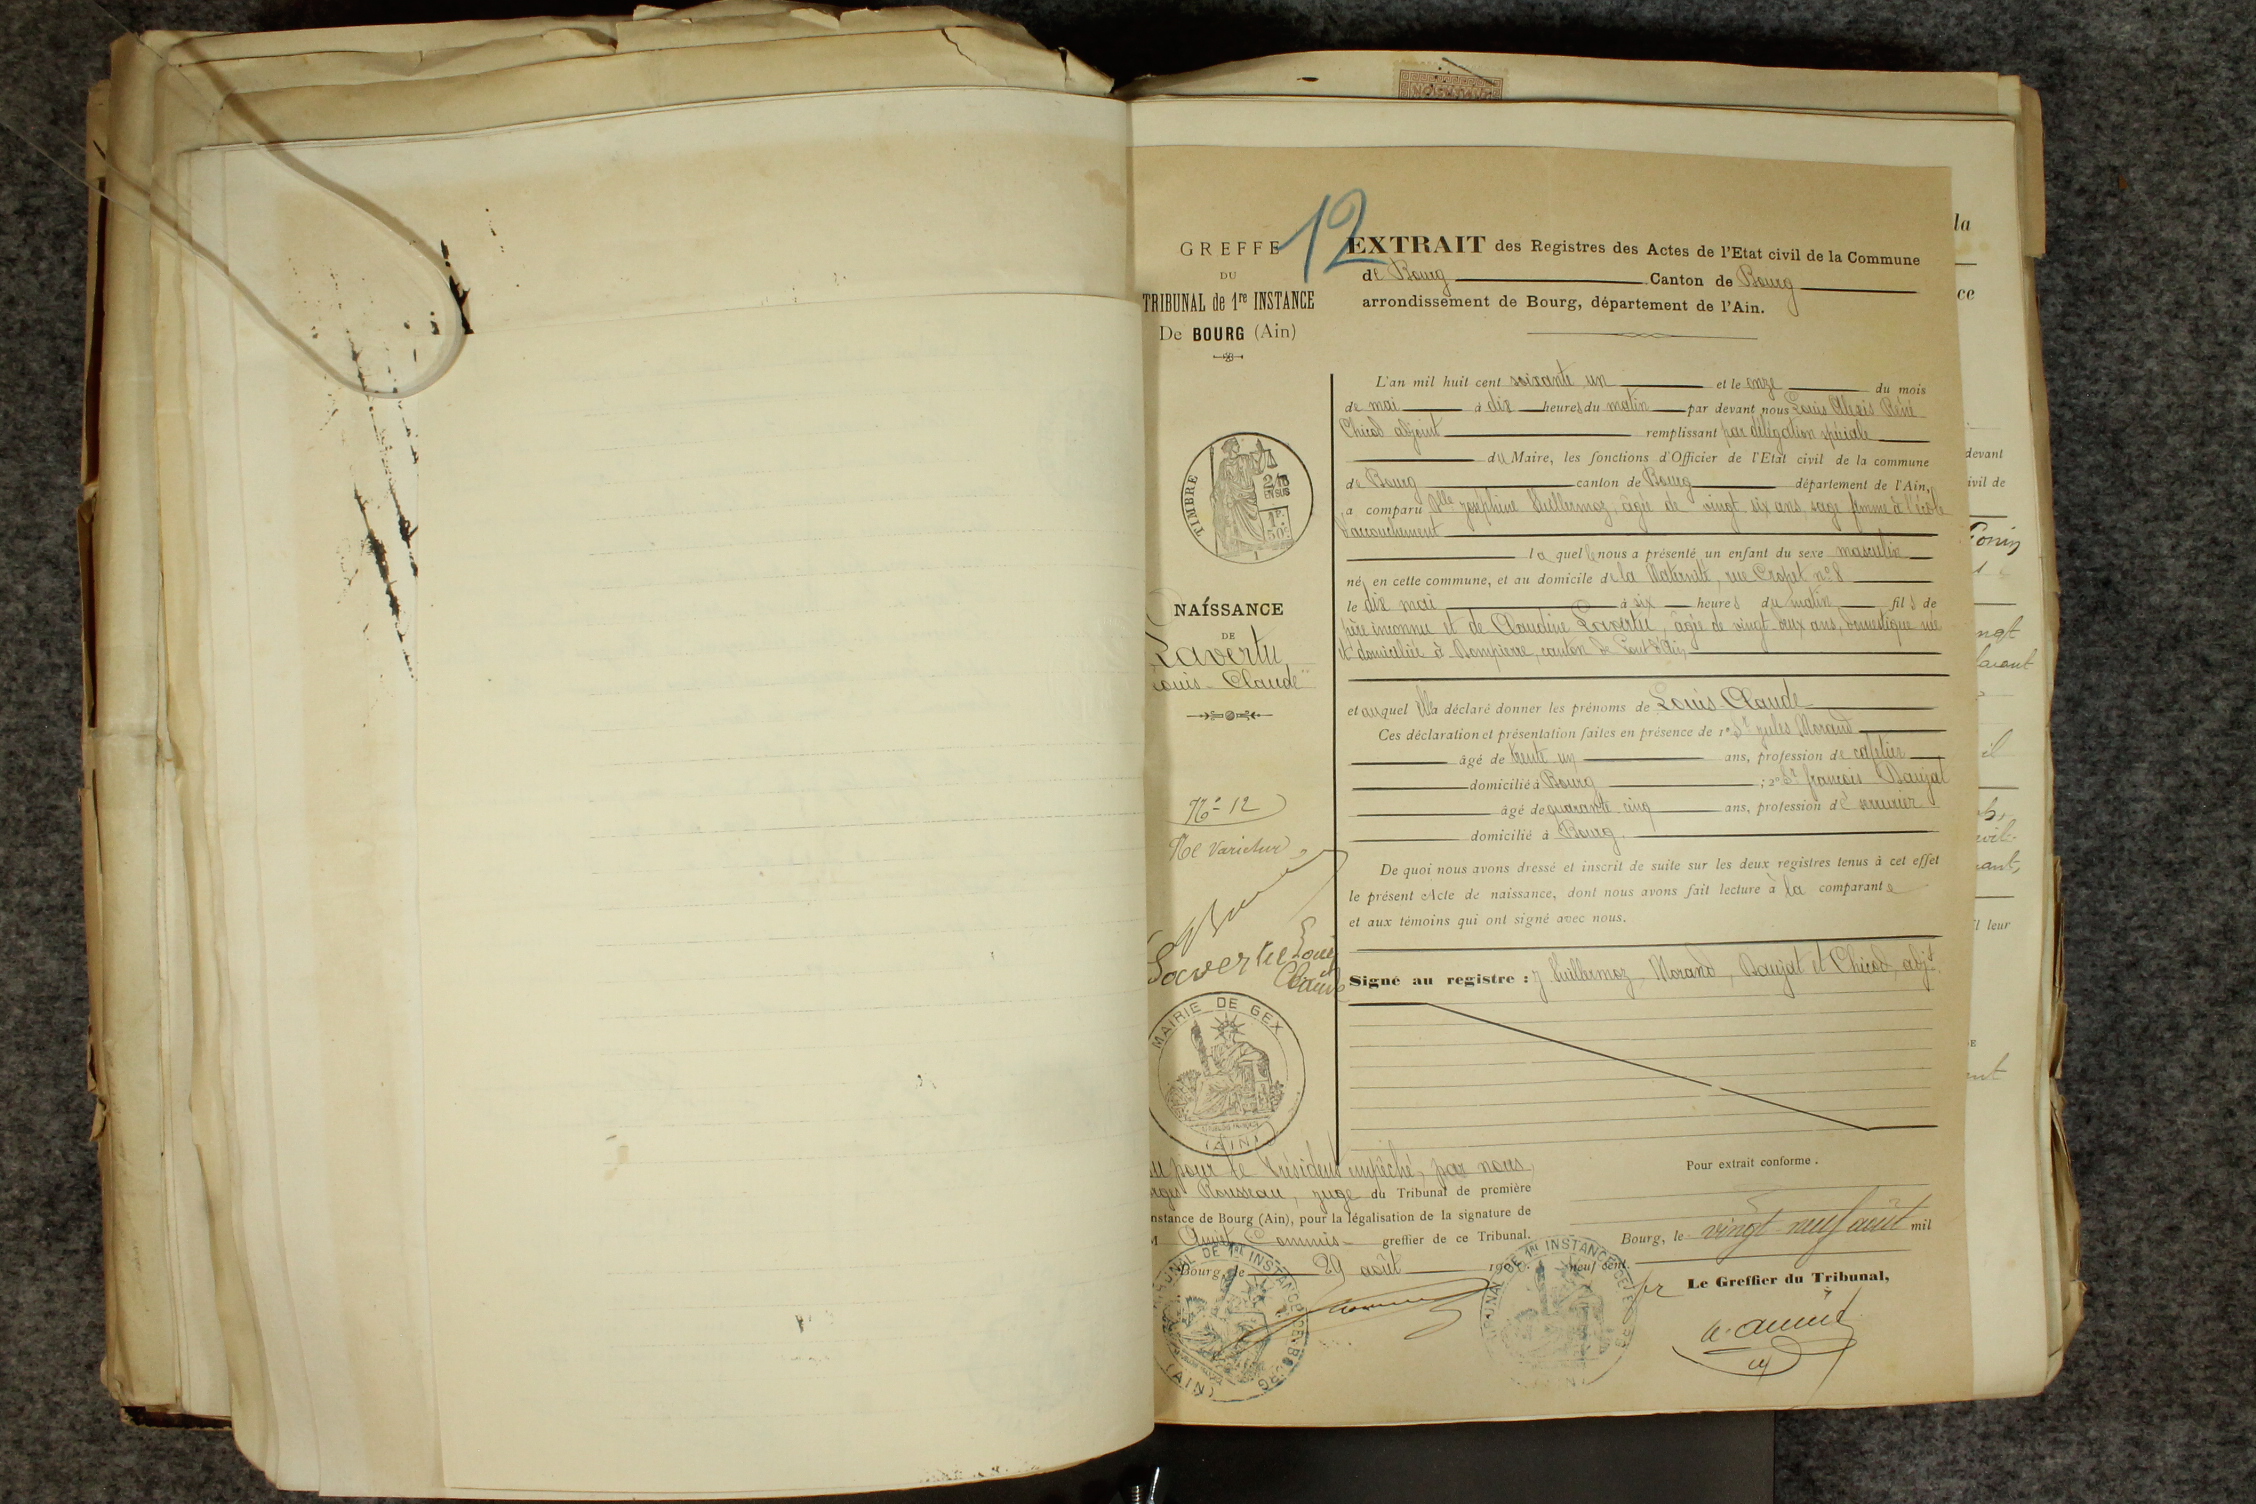 12
GREFFE
DU
TRIBUNAL de 1re INSTANCE
De BOURG (Ain)
TIMBRE
2/10
EN SUS
1F.
50c
NAISSANCE
DE
Lavertu
Louis-Claude
No 12
Ne Varietur
Lavertu Louis
Claude
MAIRIE DE GEX
(AIN)
EXTRAIT des Registres des Actes de l'Etat civil de la Commune
de Bourg Canton de Bourg
arrondissement de Bourg, département de l'Ain.
L'an mil huit cent soixante un et le onze du mois
de mai à dix heures du matin par devant nous Louis Alexis René
Chicod adjoint remplissant par délégation spéciale
du Maire, les fonctions d'Officier de l'Etat civil de la commune
de Bourg canton de Bourg département de l'Ain,
a comparu Dlle Joséphine Vuillermoz, âgée de vingt six ans, sage femme à l'école
d'accouchement
laquelle nous a présenté un enfant du sexe masculin
né en cette commune, et au domicile de la Maternité, rue Cropet no 8
le dix mai à six heures du matin fils de
père inconnu et de Claudine Lavertu, âgée de vingt deux ans, domestique née
et domiciliée à Dompierre, canton de Pont d'Ain
et auquel elle a déclaré donner les prénoms de Louis-Claude
Ces déclaration et présentation faites en présence de 1o Sr Jules Morand
âgé de trente un ans, profession de cafetier
domicilié à Bourg ; 2o Sr françois Daujat
âgé de quarante cinq ans, profession de
domicilié à Bourg.
De quoi nous avons dressé et inscrit de suite sur les deux registres tenus à cet effet
le présent Acte de naissance, dont nous avons fait lecture à la comparante
et aux témoins qui ont signé avec nous.
Signé au registre : J Vuillermoz, Morand, Daujat et Chicod, adjt
Vu pour le Président empêché, par nous
Georges Rousseau, juge du Tribunal de première
instance de Bourg (Ain), pour la légalisation de la signature de
M Amiet Commis- greffier de ce Tribunal.
Bourg, le 29 août 190
TRIBUNAL DE 1RE INSTANCE DE BOURG
(AIN)
Pour extrait conforme.
Bourg, le vingt neuf août mil
neuf cent
pr Le Greffier du Tribunal,
TRIBUNAL DE 1RE INSTANCE DE
la
ce
devant
ivil de
il
l leur